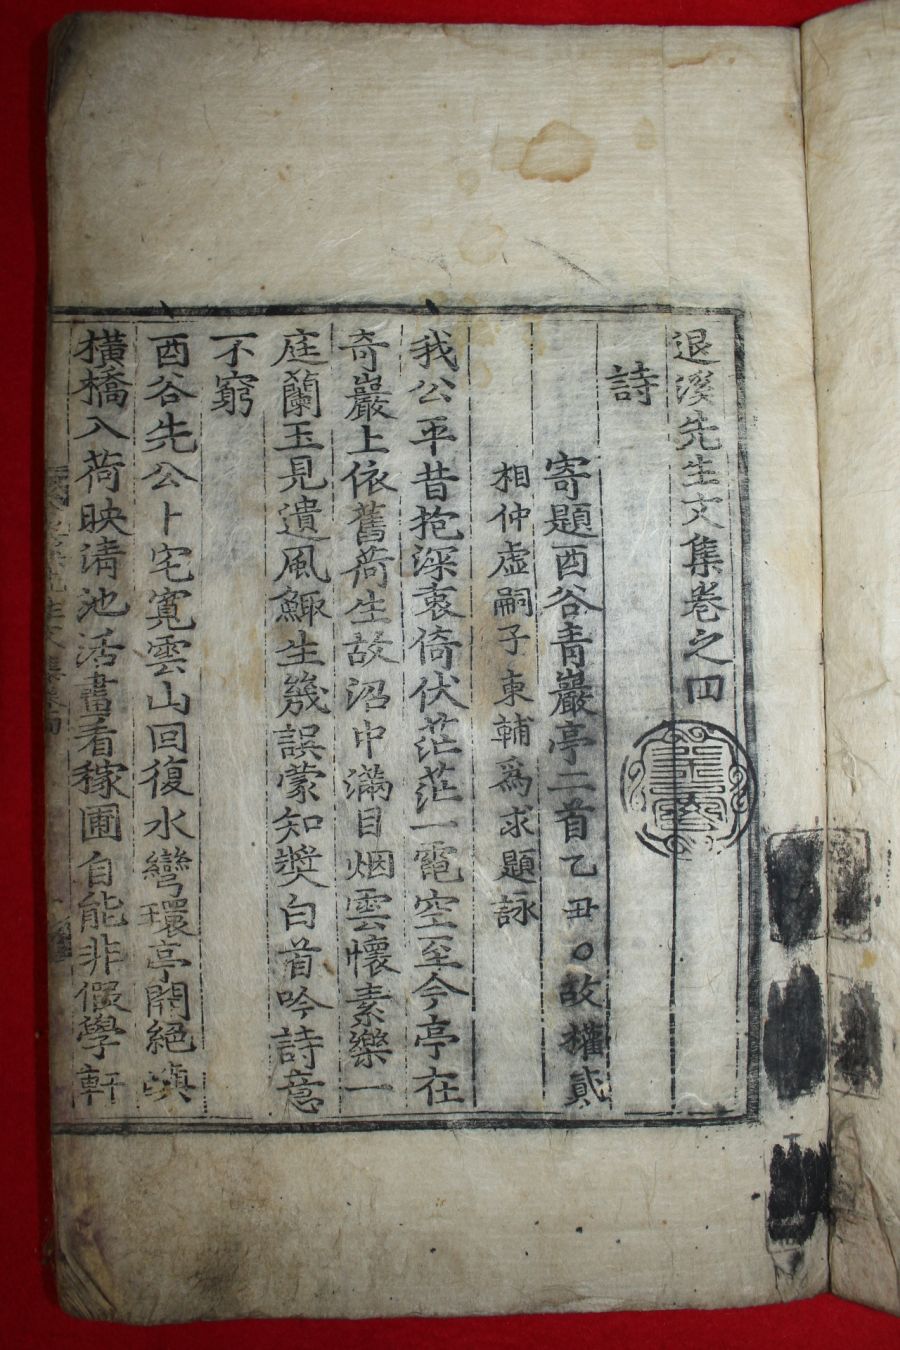 退溪先生文集卷之四
詩
寄題酉谷靑巖亭二首乙丑○故權貳
相仲虛嗣子東輔爲求題詠
我公平昔抱深衷倚伏茫茫一電空至今亭在
奇巖上依舊荷生故沼中滿目烟雲懷素樂一
庭蘭玉見遺風鯫生幾誤蒙知奬白首吟詩意
不窮
酉谷先公卜宅寬雲山回復水彎環亭開絕
橫橋入荷映淸池活畫看稼圃自能非假學軒